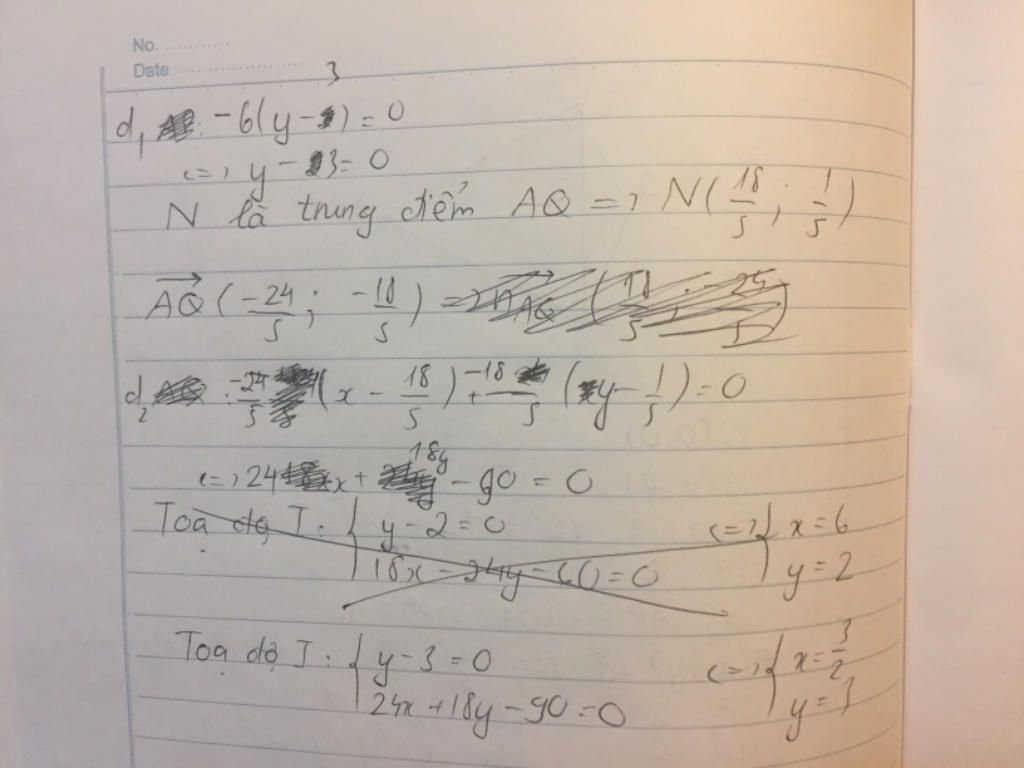 No.
Date
d₁ : -6(y-3) = 0
<=> y - 3 = 0
N là trung điểm AQ => N(18/5 ; 1/5)
AQ→ (-24/5 ; -18/5)
d₂ : -24/5 (x - 18/5) + -18/5 (y - 1/5) = 0
<=> 24x + 18y - 90 = 0
Toạ độ I : { y - 2 = 0 <=> { x = 6
18x - 24y - 60 = 0 y = 2
Toạ độ I : { y - 3 = 0 <=> { x = 3/2
24x + 18y - 90 = 0 y = 3